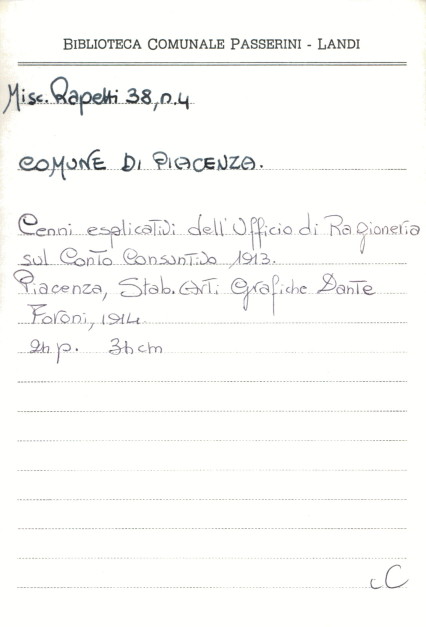 BIBLIOTECA COMUNALE PASSERINI - LANDI
Misc. Rapetti 38, n.4
COMUNE DI PIACENZA.
Cenni esplicativi dell'Ufficio di Ragioneria
sul Conto Consuntivo 1913.
Piacenza, Stab. Arti Grafiche Dante
Foroni, 1914.
24 p. 34 cm
cC